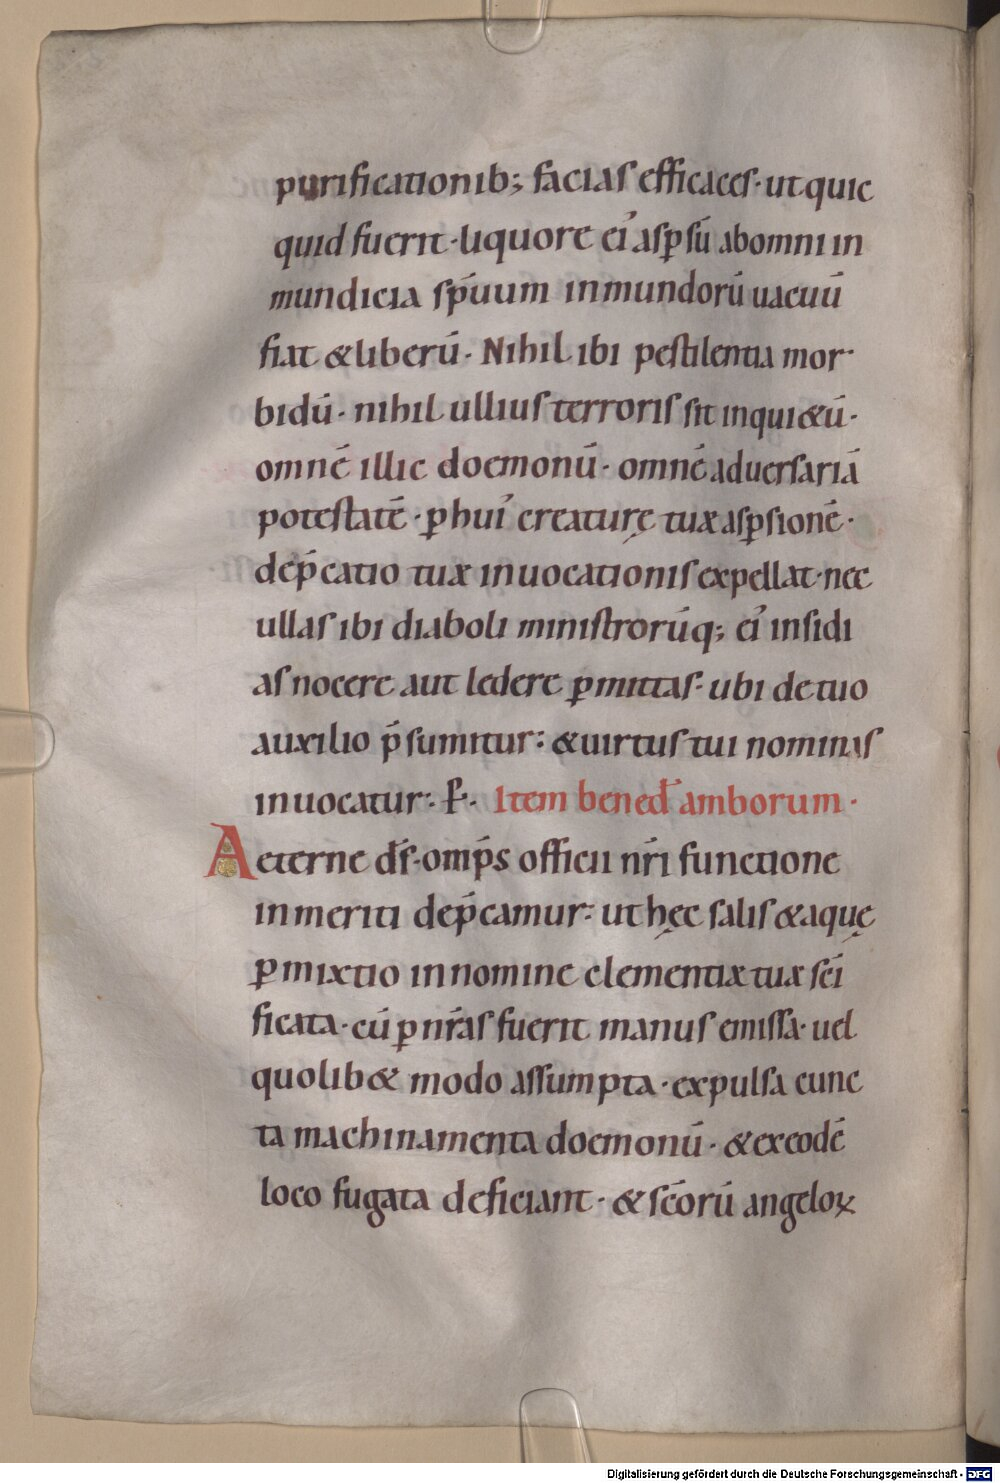 purificationib; facias efficaces· ut quic
quid fuerit· liquore ei᾽ asꝑsū ab omni in
mundicia sp̄uum inmundorū uacuū
fiat & liberū· Nihil ibi pestilentia mor·
bidū· nihil ullius terroris sit inqui&ū·
omnē illic doemonū· omnē aduersariā
potestatē· ꝑ hui᾽ creaturę tuæ asꝑsionē·
dep̄catio tuæ inuocationis expellat· nec
ullas ibi diaboli ministrorūq; ei᾽ insidi
as nocere aut ledere ꝑmittas· ubi de tuo
auxilio p̄sumitur: & uirtus tui nominis
inuocatur: P̱· Item bened̄ amborum·
Aeterne d̄s· omp̄s officii nr̄i functione
inmeriti dep̄camur: ut hęc salis & aquę
ꝑmixtio in nomine clementiæ tuæ sc̄i
ficata· cū ꝑ nr̄as fuerit manus emissa· uel
quolib& modo assumpta· expulsa cunc
ta machinamenta doemonū· & ex eodē
loco fugata deficiant· & sc̄orū angeloꝝ
Digitalisierung gefördert durch die Deutsche Forschungsgemeinschaft - DFG